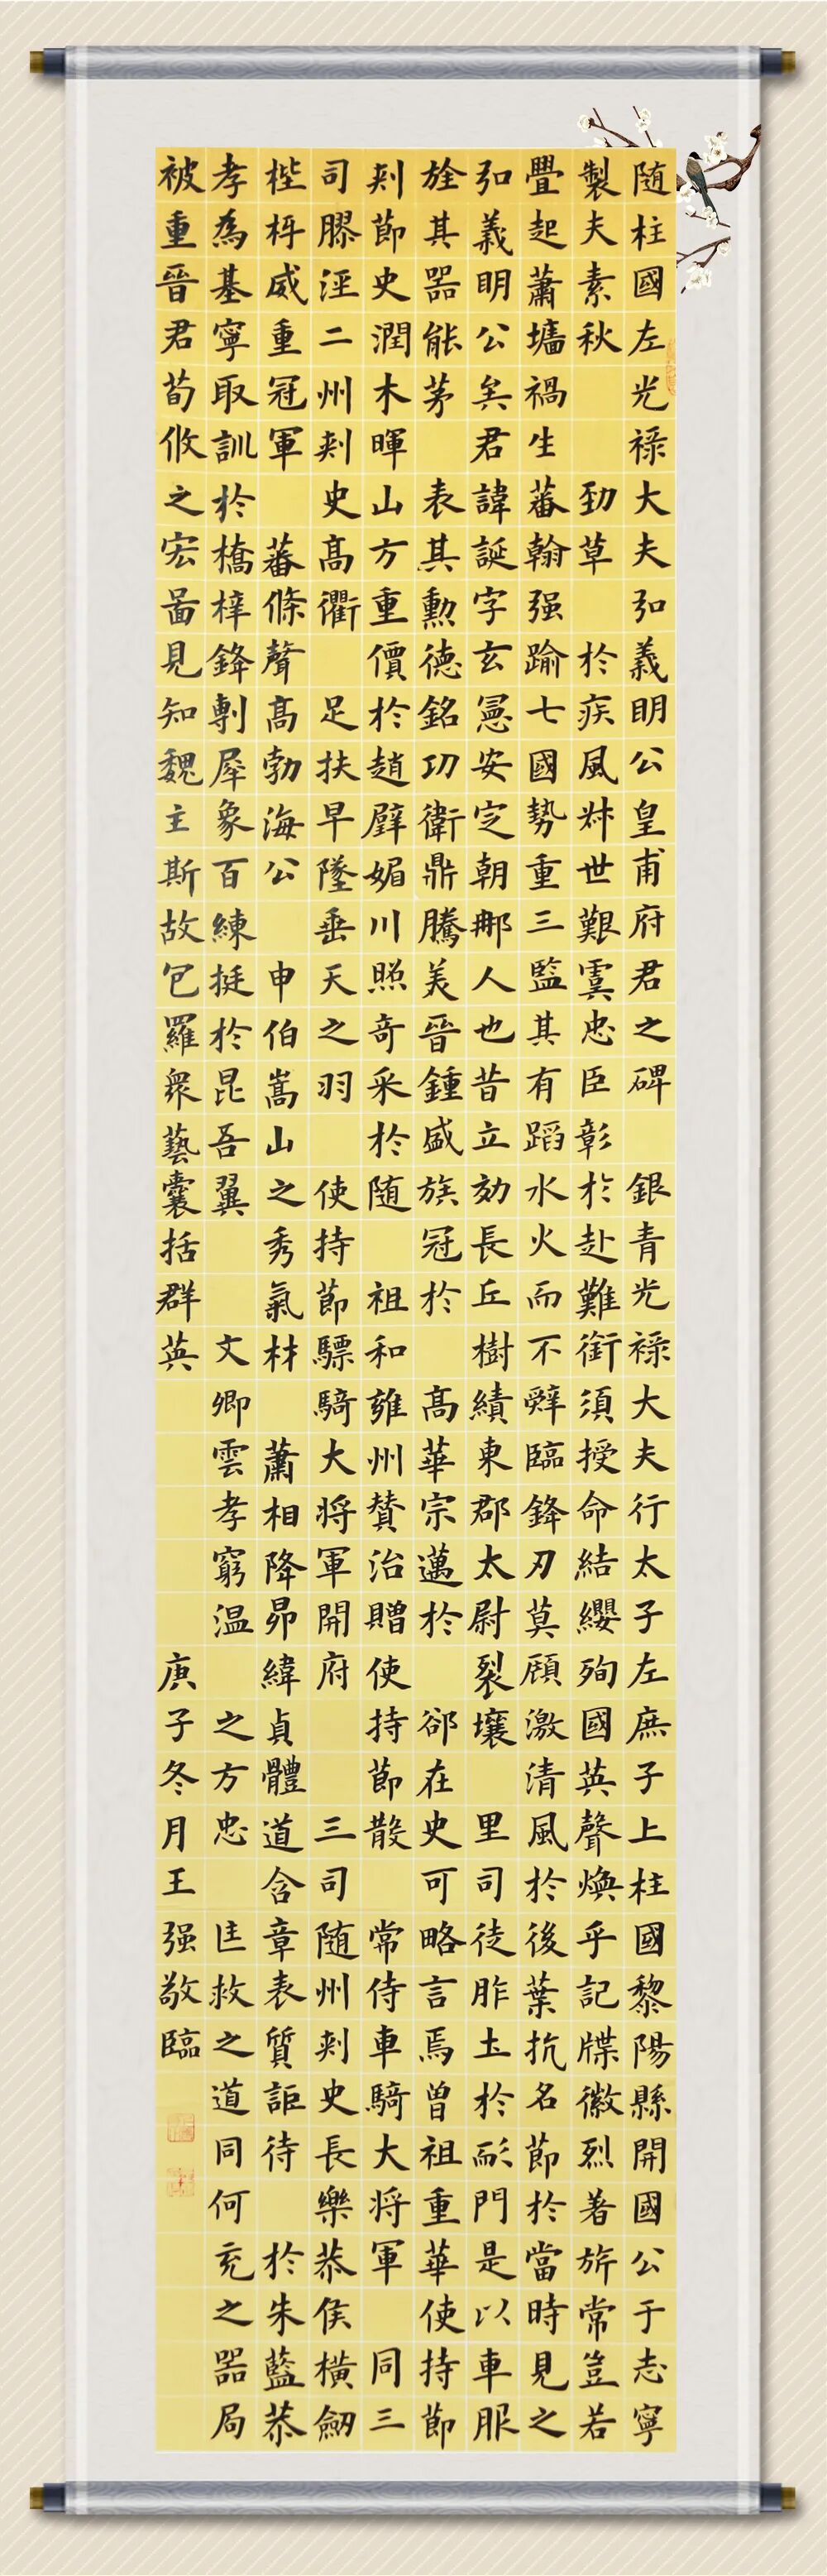 随柱國左光祿大夫弘義明公皇甫府君之碑 銀青光祿大夫行太子左庶子上柱國黎陽縣開國公于志寧
製夫素秋 勁草 於疾風叔世艱虞忠臣彰於赴難銜須授命結纓殉國英聲煥乎記牒徽烈著旂常豈若
疊起蕭墻禍生蕃翰强踰七國勢重三監其有蹈水火而不辤臨鋒刃莫顧激清風於後葉抗名節於當時見之
弘義明公矣君諱誕字玄憲安定朝那人也昔立効長丘樹績東郡太尉裂壤 里司徒胙土於耏門是以車服
旌其器能茅 表其勳德銘功衛鼎騰美晉鍾盛族冠於 高華宗邁於 郤在史可略言焉曾祖重華使持節
刾節史潤木暉山方重價於趙璧媚川照奇采於随 祖和雍州贊治贈使持節散 常侍車騎大將軍 同三
司膠涇二州刾史高衢 足扶早墜垂天之羽 使持節驃騎大将軍開府 三司随州刾史長樂恭侯横劒
梐枑威重冠軍 蕃條聲高勃海公 申伯嵩山之秀氣材 蕭相降昴緯貞體道含章表質詎待 於朱藍恭
孝為基寧取訓於橋梓鋒剸犀象百練挺於昆吾翼 文卿雲孝窮温 之方忠 匡救之道同何充之器局
被重晉君荀攸之宏啚見知魏主斯故包羅衆藝囊括群英 庚子冬月王强敬臨